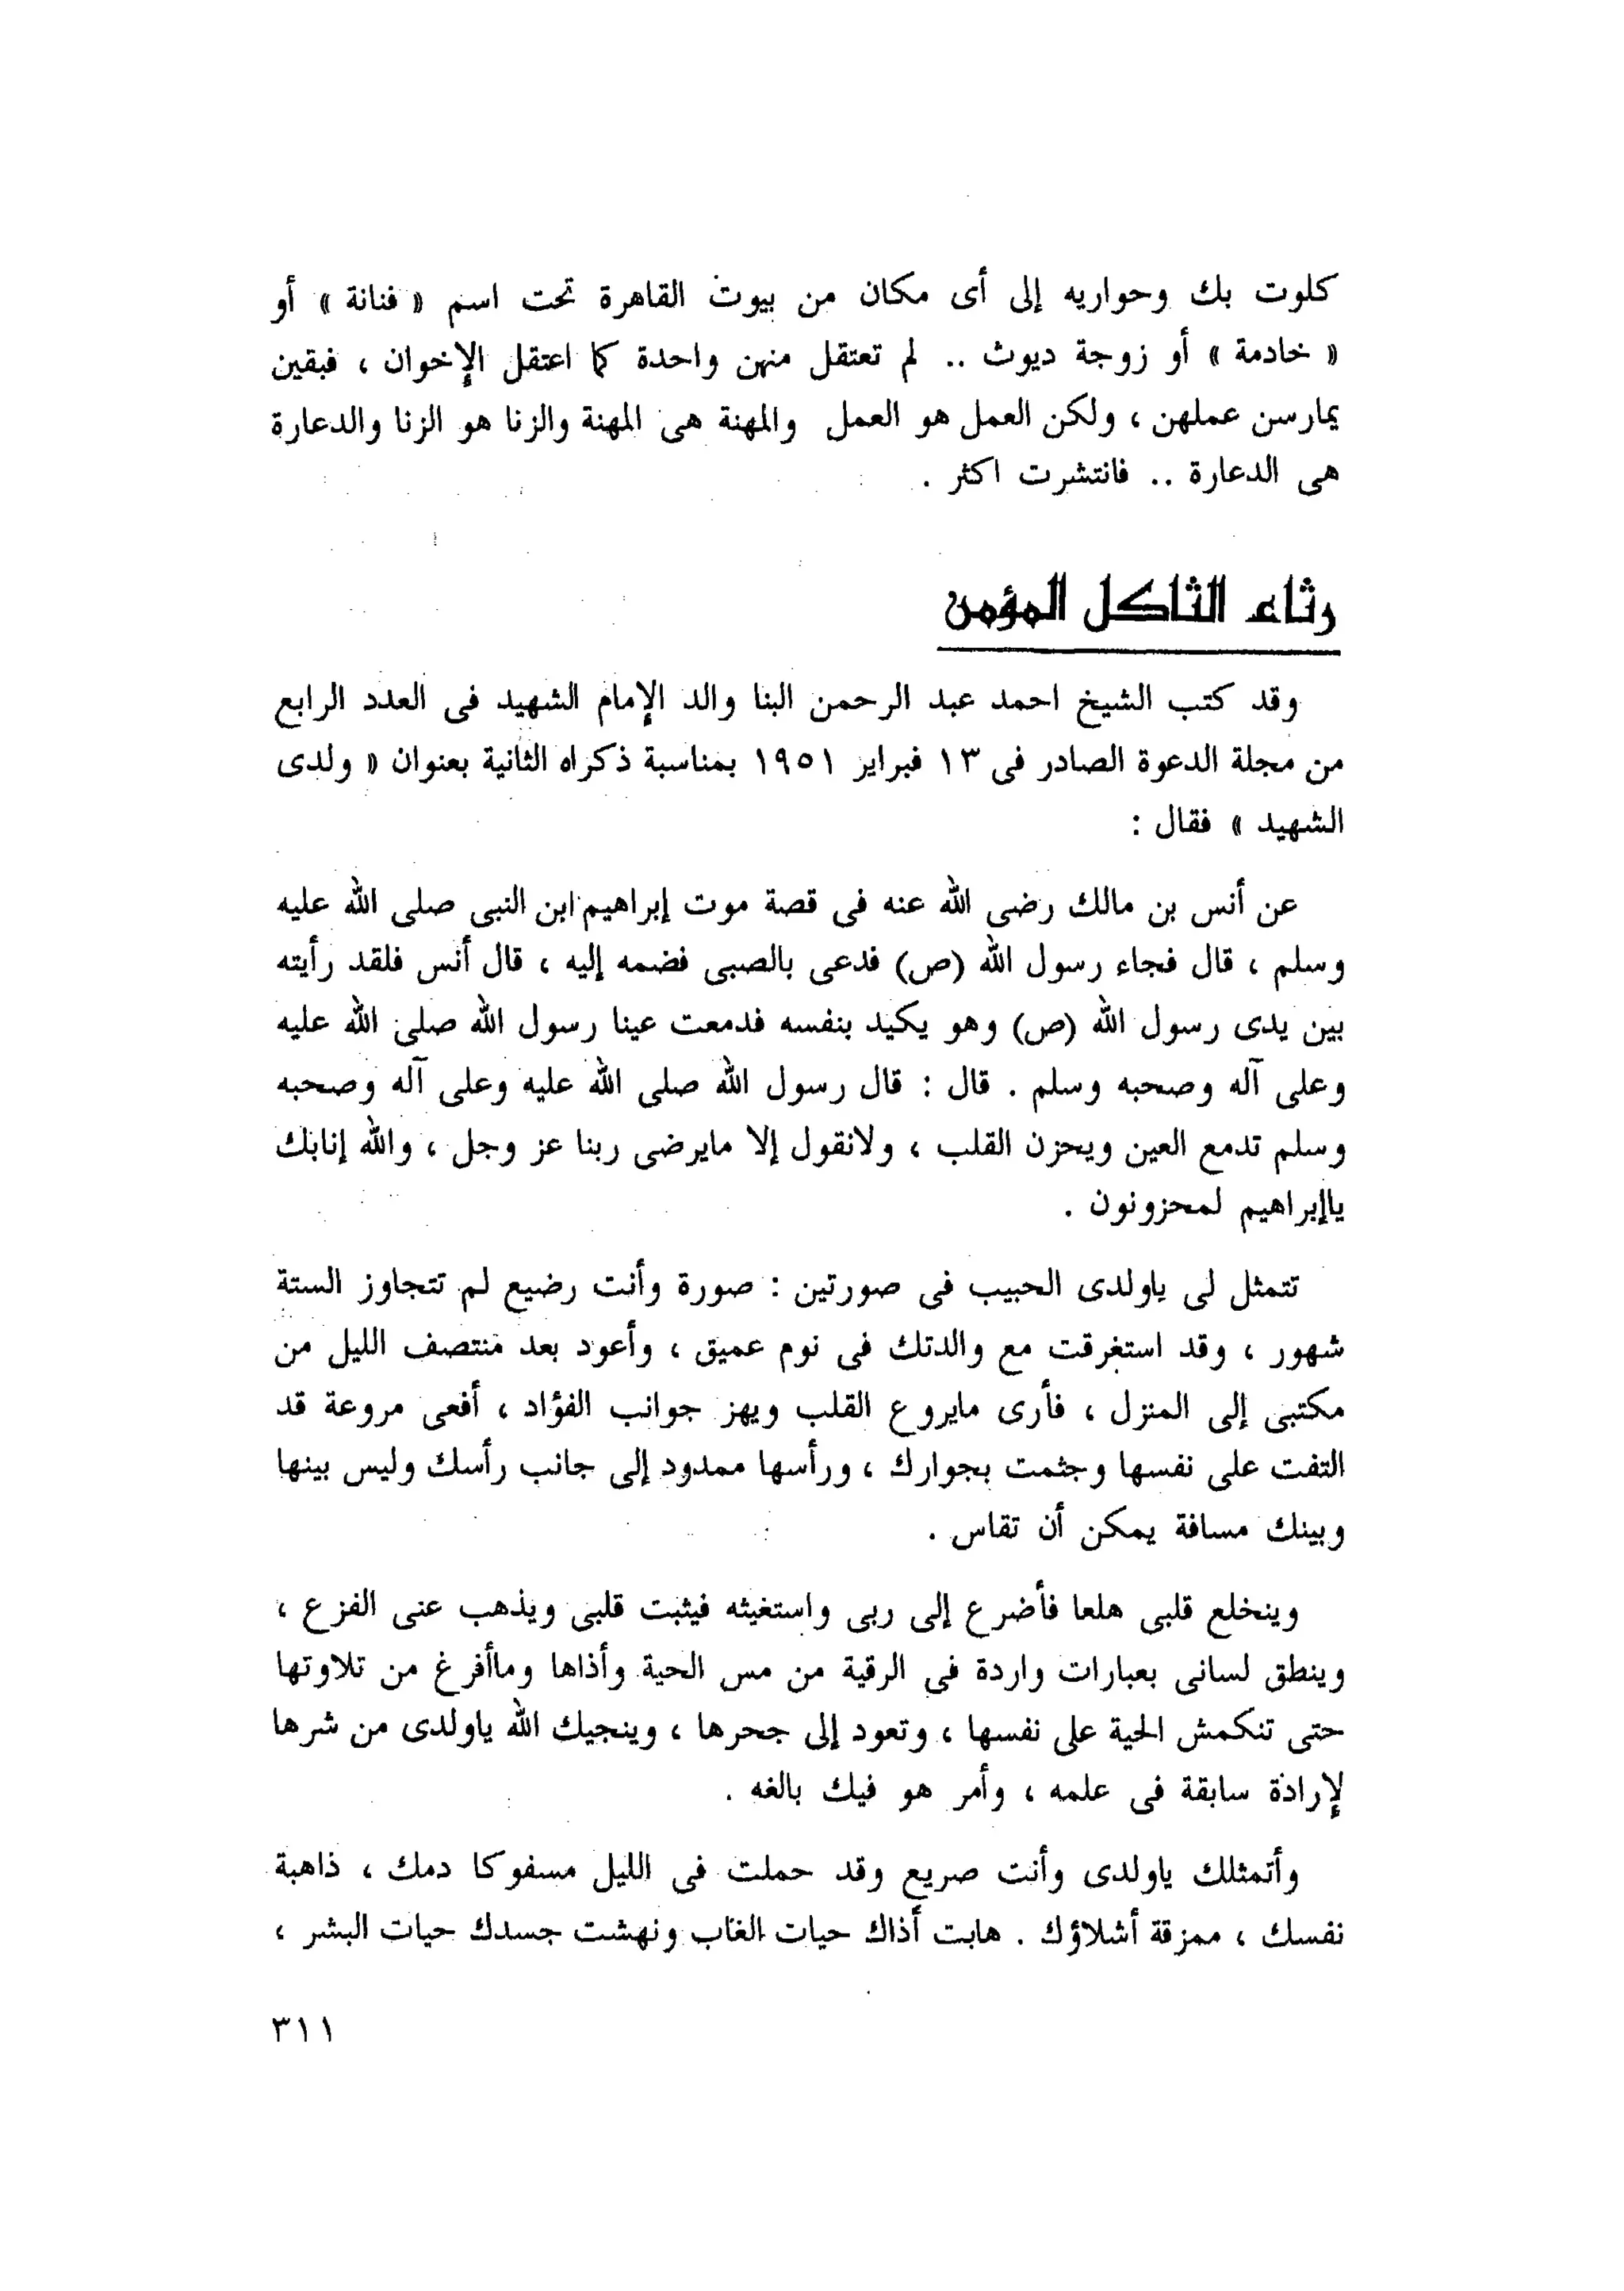 كلوت بك وحواريه إلى أى مكان من بيوت القاهرة تحت اسم « فنانة » أو
« خادمة » أو زوجة ديوث .. لم تعتقل منهن واحدة كما اعتقل الإخوان ، فبقين
يمارسن عملهن ، ولكن العمل هو العمل والمهنة هى المهنة والزنا هو الزنا والدعارة
هى الدعارة .. فانتشرت اكثر .
رثاء الثاكل المؤمن
وقد كتب الشيخ احمد عبد الرحمن البنا والد الإمام الشهيد فى العدد الرابع
من مجلة الدعوة الصادر فى ١٣ فبراير ١٩٥١ بمناسبة ذكراه الثانية بعنوان « ولدى
الشهيد » فقال :
عن أنس بن مالك رضى الله عنه فى قصة موت إبراهيم ابن النبى صلى الله عليه
وسلم ، قال فجاء رسول الله (ص) فدعى بالصبى فضمه إليه ، قال أنس فلقد رأيته
بين يدى رسول الله (ص) وهو يكيد بنفسه فدمعت عينا رسول الله صلى الله عليه
وعلى آله وصحبه وسلم . قال : قال رسول الله صلى الله عليه وعلى آله وصحبه
وسلم تدمع العين ويحزن القلب ، ولانقول إلا مايرضى ربنا عز وجل ، والله إنابك
ياإبراهيم لمحزونون .
تتمثل لى ياولدى الحبيب فى صورتين : صورة وأنت رضيع لم تتجاوز الستة
شهور ، وقد استغرقت مع والدتك فى نوم عميق ، وأعود بعد منتصف الليل من
مكتبى إلى المنزل ، فأرى مايروع القلب ويهز جوانب الفؤاد ، أفعى مروعة قد
التفت على نفسها وجثمت بجوارك ، ورأسها ممدود إلى جانب رأسك وليس بينها
وبينك مسافة يمكن أن تقاس .
وينخلع قلبى هلعا فأضرع إلى ربى واستغيثه فيثبت قلبى ويذهب عنى الفزع ،
وينطق لسانى بعبارات واردة فى الرقية من مس الحية وأذاها وماأفرغ من تلاوتها
حتى تنكمش الحية على نفسها ، وتعود إلى جحرها ، وينجيك الله ياولدى من شرها
لإرادة سابقة فى علمه ، وأمر هو فيك بالغه .
وأتمثلك ياولدى وأنت صريع وقد حملت فى الليل مسفوكا دمك ، ذاهبة
نفسك ، ممزقة أشلاؤك . هابت أذاك حيات الغاب ونهشت جسدك حيات البشر ،
٣١١